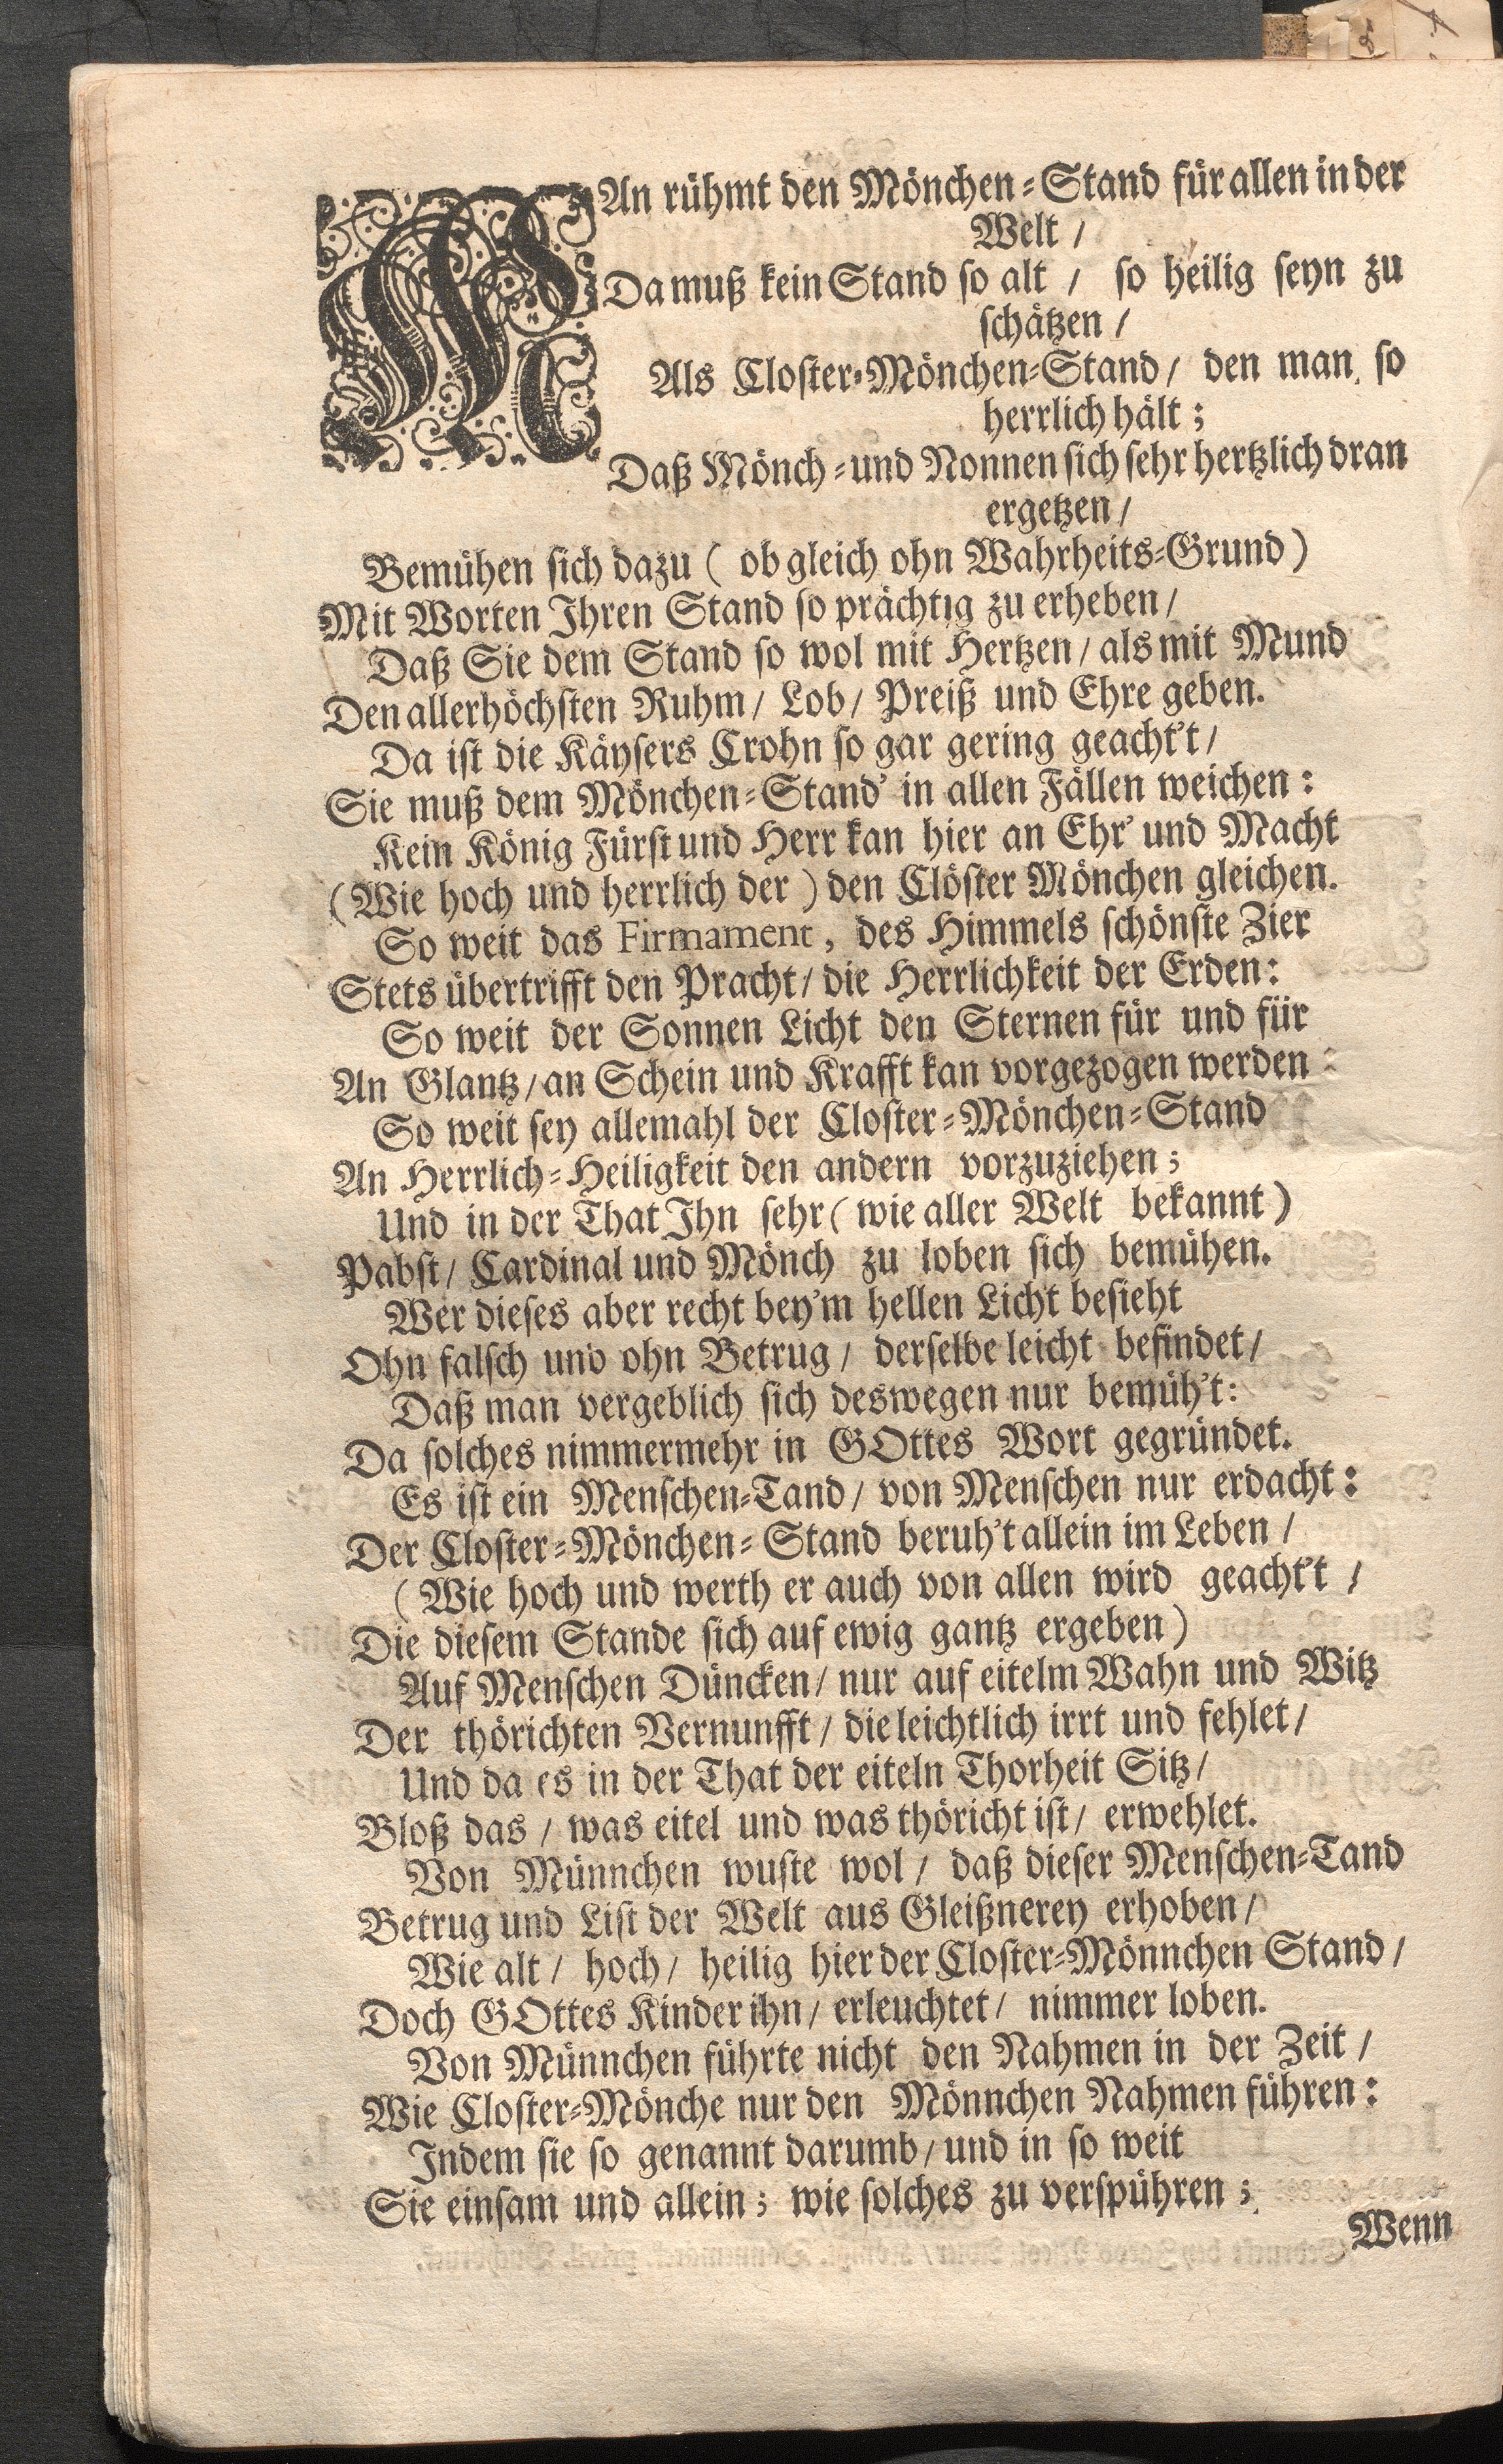 MAn rühmt den Mönchen-Stand für allen in der
Welt /
Da muß kein Stand so alt / so heilig seyn zu
schätzen /
Als Closter-Mönchen-Stand / den man so
herrlich hält ;
Daß Mönch- und Nonnen sich sehr hertzlich dran
ergetzen /
Bemühen sich dazu ( ob gleich ohn Wahrheits-Grund )
Mit Worten Ihren Stand so prächtig zu erheben /
Daß Sie dem Stand so wol mit Hertzen / als mit Mund
Den allerhöchsten Ruhm / Lob / Preiß und Ehre geben.
Da ist die Käysers Crohn so gar gering geacht't /
Sie muß dem Mönchen-Stand' in allen Fällen weichen :
Kein König Fürst und Herr kan hier an Ehr' und Macht
( Wie hoch und herrlich der ) den Clöster Mönchen gleichen.
So weit das Firmament , des Himmels schönste Zier
Stets übertrifft den Pracht / die Herrlichkeit der Erden :
So weit der Sonnen Licht den Sternen für und für
An Glantz / an Schein und Krafft kan vorgezogen werden :
So weit sey allemahl der Closter-Mönchen-Stand
An Herrlich-Heiligkeit den andern vorzuziehen ;
Und in der That Ihn sehr ( wie aller Welt bekannt )
Pabst / Cardinal und Mönch zu loben sich bemühen.
Wer dieses aber recht bey'm hellen Licht besieht
Ohn falsch und ohn Betrug / derselbe leicht befindet /
Daß man vergeblich sich deswegen nur bemüh't :
Da solches nimmermehr in GOttes Wort gegründet.
Es ist ein Menschen-Tand / von Menschen nur erdacht :
Der Closter-Mönchen-Stand beruh't allein im Leben /
( Wie hoch und werth er auch von allen wird geacht't /
Die diesem Stande sich auf ewig gantz ergeben )
Auf Menschen Düncken / nur auf eitelm Wahn und Witz
Der thörichten Vernunfft / die leichtlich irrt und fehlet /
Und da es in der That der eiteln Thorheit Sitz /
Bloß das / was eitel und was thöricht ist / erwehlet.
Von Münnchen wuste wol / daß dieser Menschen-Tand
Betrug und List der Welt aus Gleißnerey erhoben /
Wie alt / hoch / heilig hier der Closter-Mönnchen Stand /
Doch GOttes Kinder ihn / erleuchtet / nimmer loben.
Von Münnchen führte nicht den Nahmen in der Zeit /
Wie Closter-Mönche nur den Mönnchen Nahmen führen :
Indem sie so genannt darumb / und in so weit
Sie einsam und allein ; wie solches zu verspühren ;
Wenn